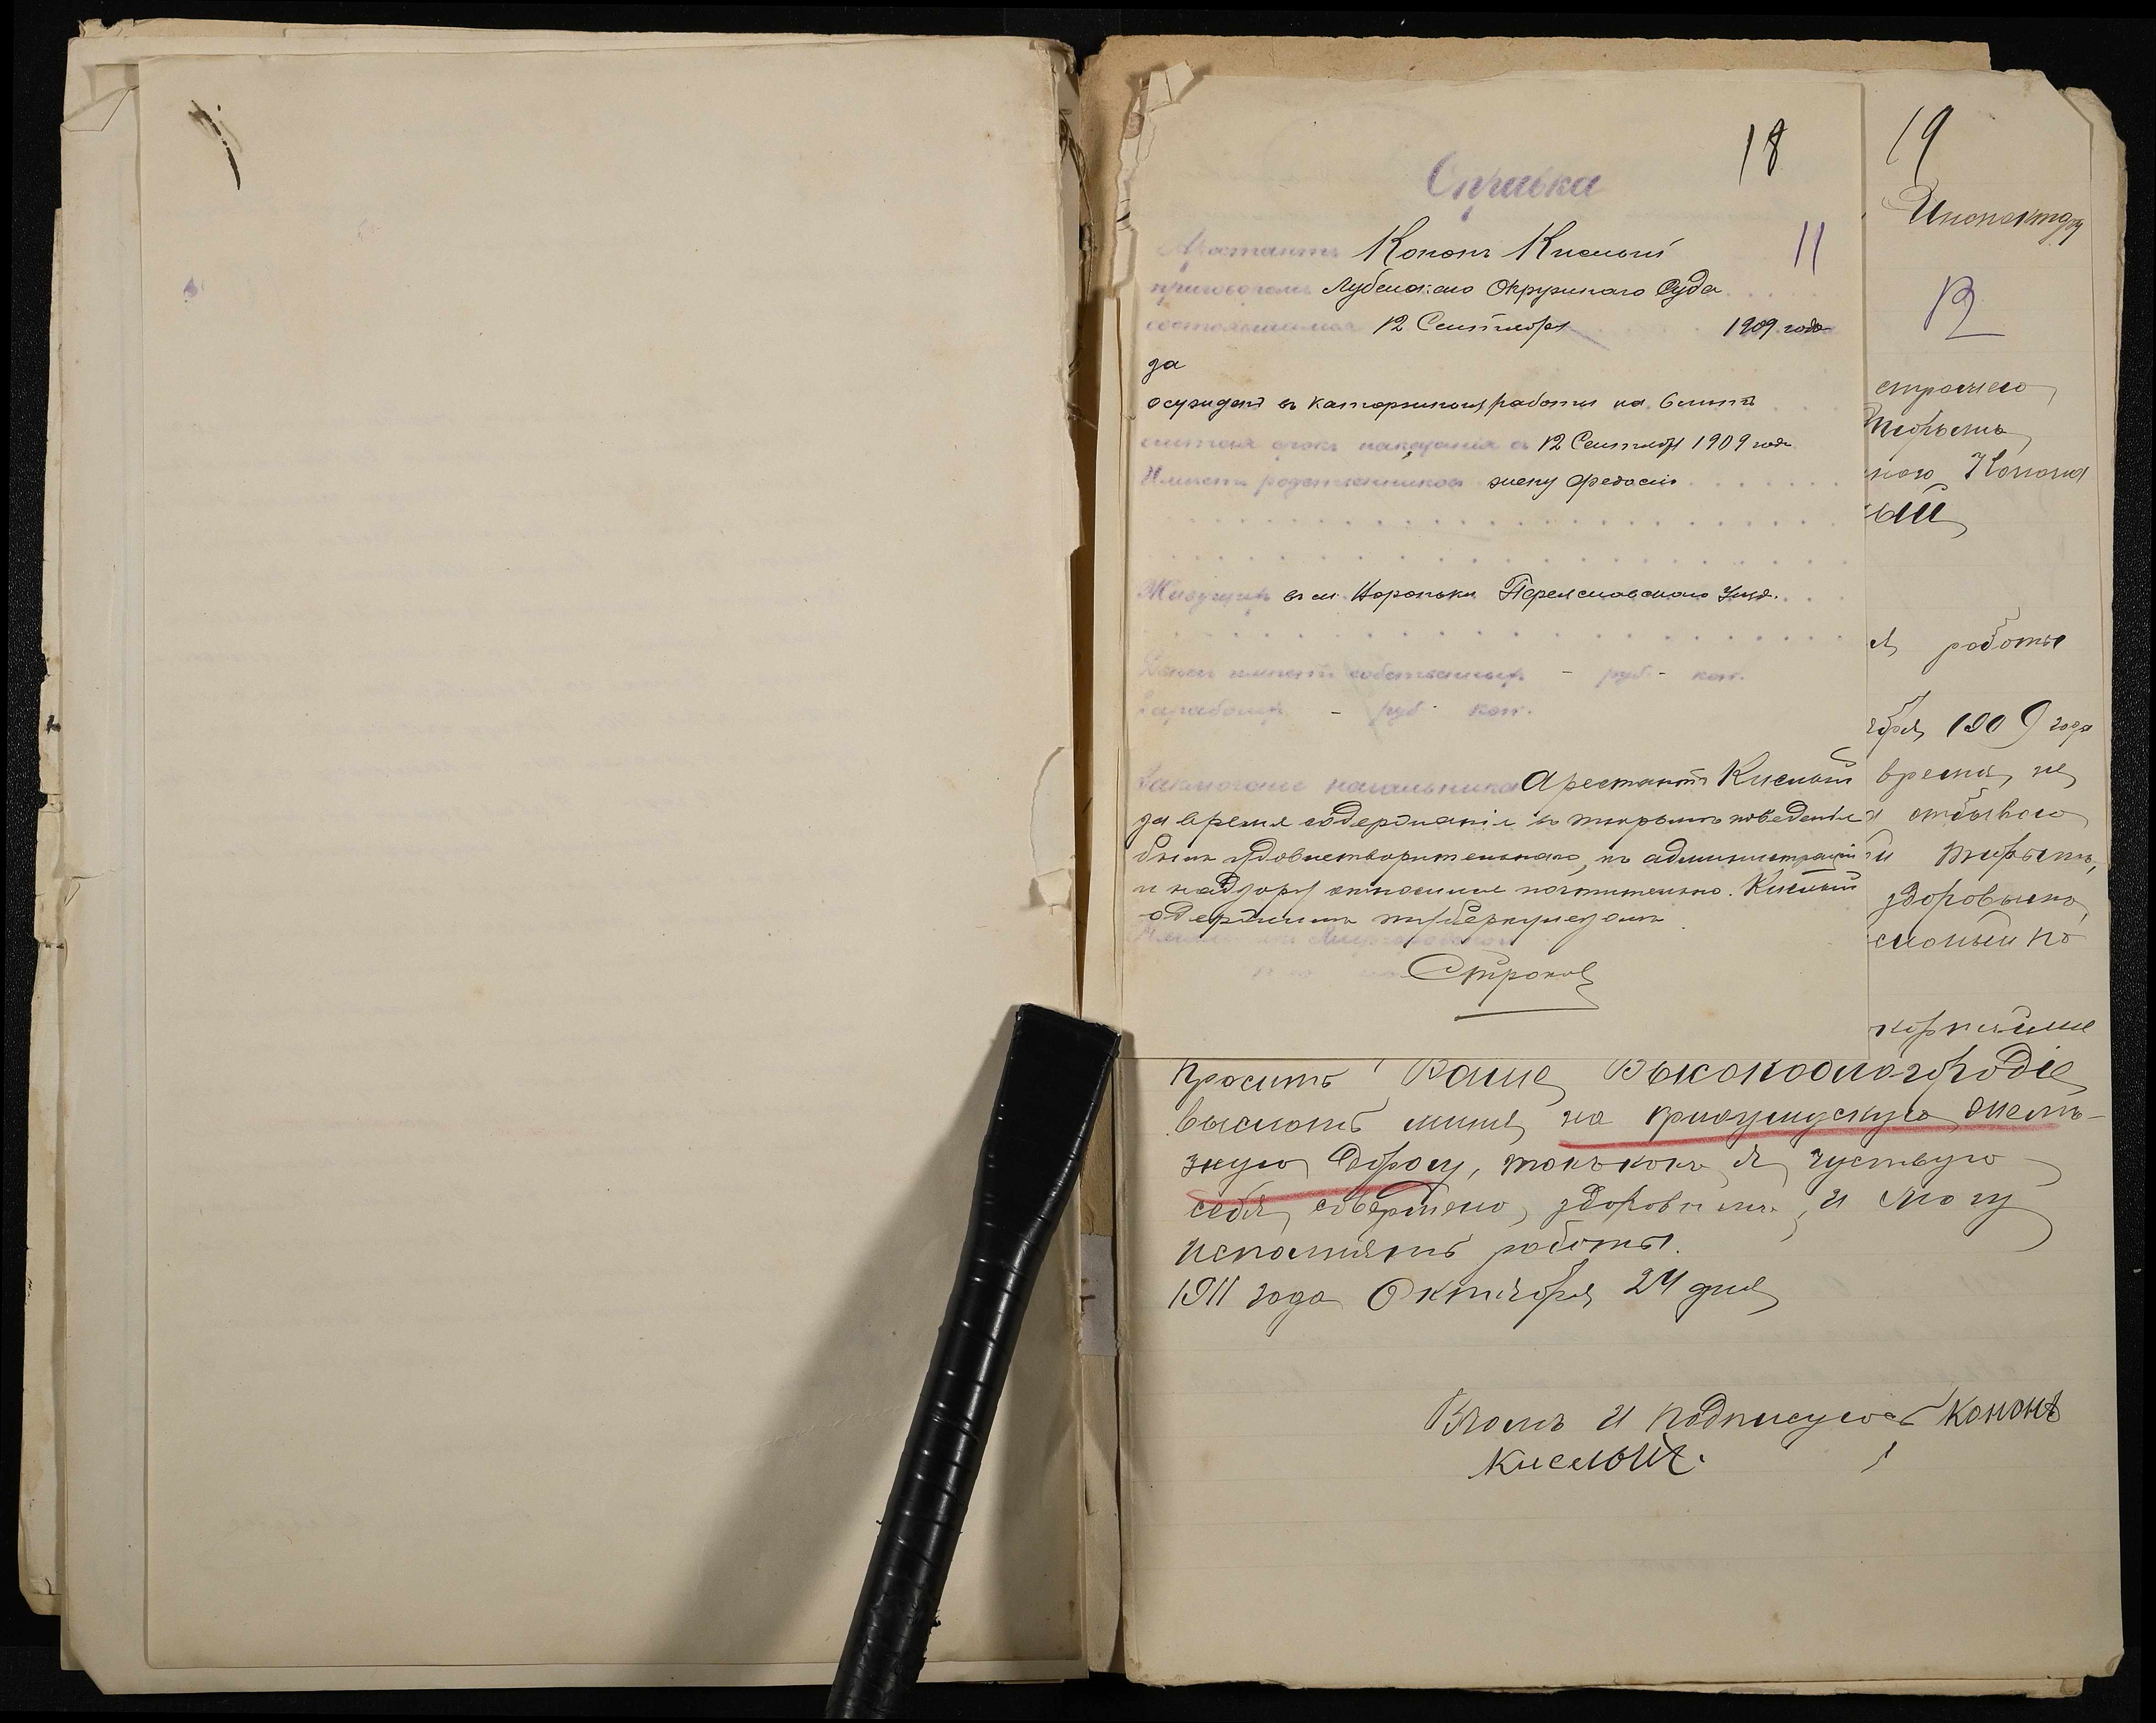 18
Справка
11
Арестантъ Кононъ Кислый
приговоромъ Лубенскаго Окружнаго Суда
состоявшемся 12 Сентября 1909 года
за
осужденъ въ каторжныя работы на 6 лѣтъ
считая срокъ наказанія съ 12 Сентября 1909 года
Имѣетъ родственниковъ жену Федосію
Живущихъ въ м. Переяславскаго Уѣзд.
Денегъ имѣетъ собственныхъ - руб - коп.
Заработ. - руб - коп.
Заключеніе начальника Арестантъ Кислый
за время содержанія въ тюрьмѣ поведенія
былъ удовлетворительнаго, къ администраціи
и надзору относился почтительно. Кислый
одержимъ туберкулезомъ
Строков
19
Инспектору
12
Тюрьмы
Конона
ый
я работы
ября 1909 года
время не
отбываю
тюрьмѣ,
здоровьемъ,
сланый по
корнѣйше
просить Ваше Высокоблагородіе
выслать мине на приамурскую желѣ-
зную дорогу, такъ какъ я чуствую
себя совершено здоровымъ, и могу
исполнять работы.
1911 года Октября 24 дня
Втомъ и подписуюсь Кононъ
Кислый.